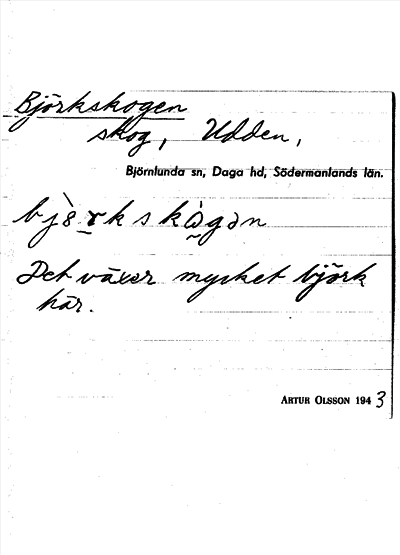 Björkskogen
skog, Udden,
Björnlunda sn, Daga hd, Södermanlands län.
Det växer mycket björk
här.
ARTUR OLSSON 1943